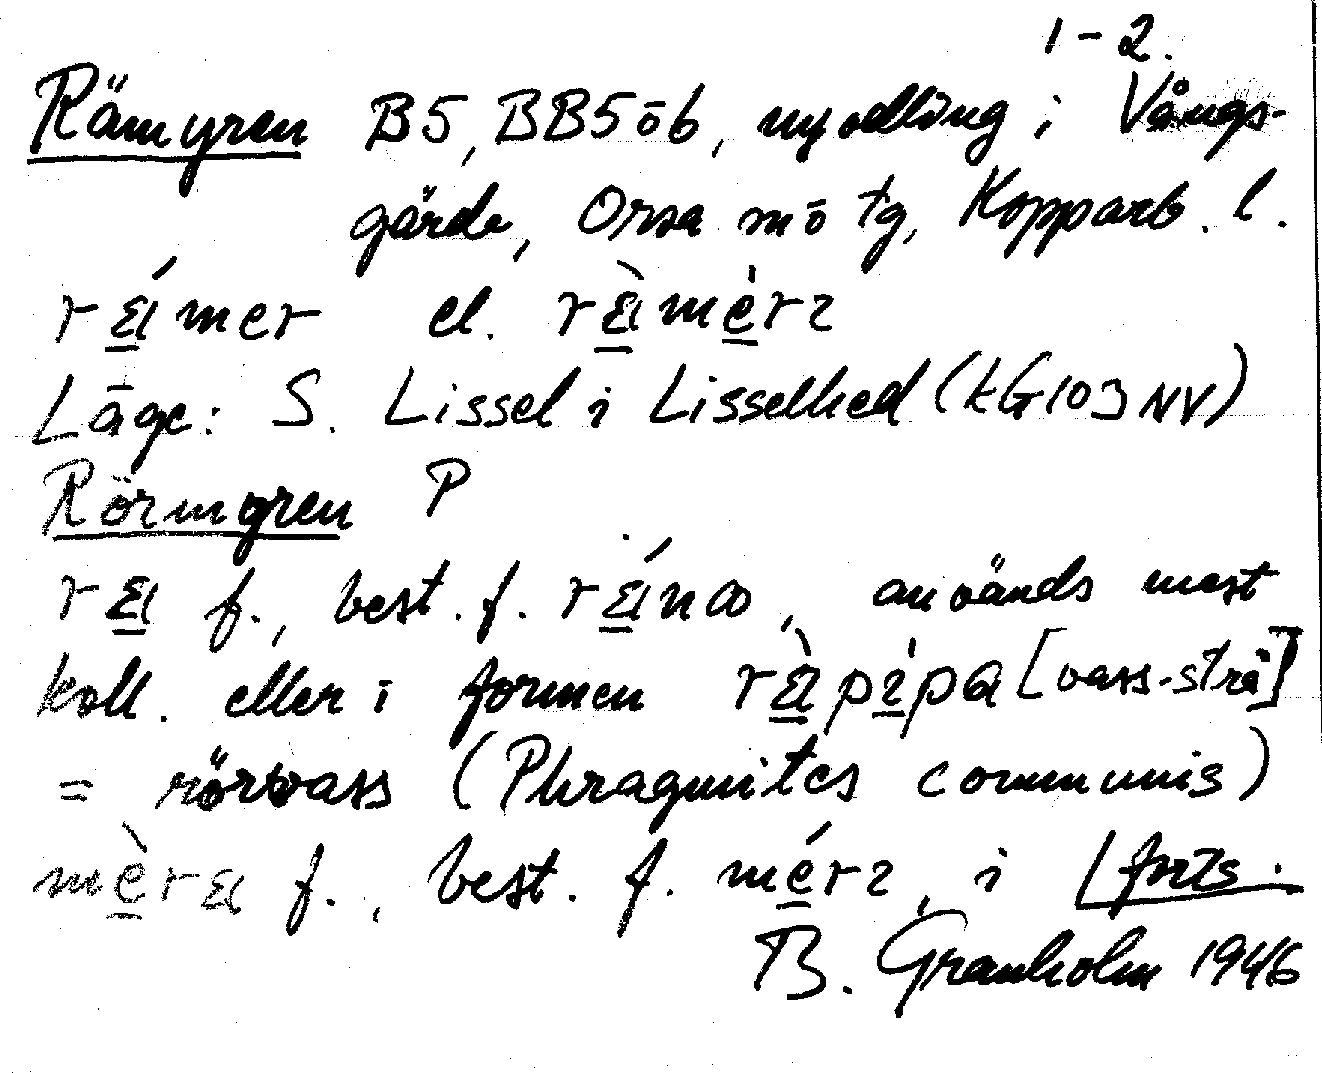 1-2.
Rämyren B5, BB5öb, nyodling i Vångs-
gärde, Orsa mö tg, Kopparb. l.
rɛ́mer el. rɛ̀mèrɿ
Läge: S. Lissel i Lisselhed (kG103NV)
Rörmyren P
rɛ f., best. f. rɛ́nɷ, används mest
koll. eller i formen rɛ̀pɿ̀pa [vass-strå]
= rörvass (Phragmites communis)
mèrɛ f., best. f. mérɿ, i Lforts.
B. Granholm 1946